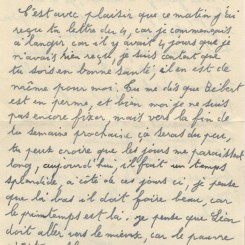 C'est avec plaisir que ce matin j'ai
reçue ta lettre du 4, car je commencais
à langer car il y avait 4 jours que je
n'avais rien reçue, je suis content que
tu sois en bonne santé, il en est de
même pour moi. Tu me dis que Bébert
est en perme, et bien moi je ne suis
pas encore fixer, mais vers la fin de
la semaine prochaine çà serais du peu,
tu peut croire que les jours me paraissent
long, aujourd'hui, il fait un temps
splendide, a côté de ces jours ci, je pense
que là bas il doit faire beau, car
le printemps est là. je pense que Léon
doit aller vers le mieux, car le pauvre